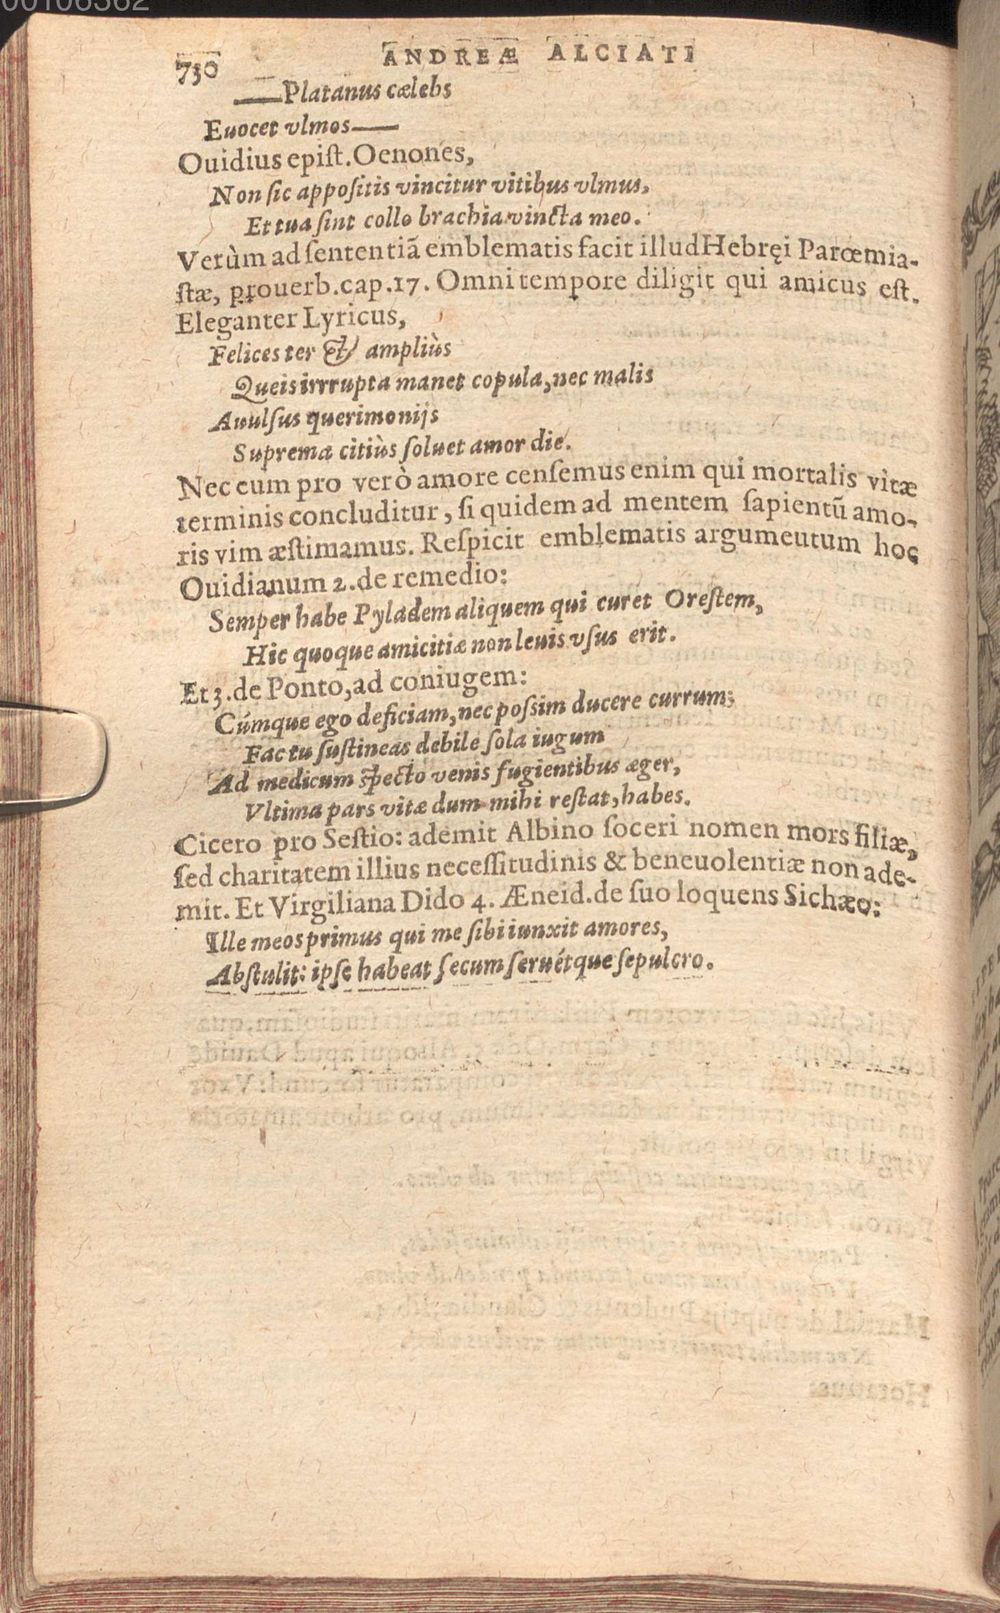 00106362
730 ANDREÆ ALCIATI
—Platanus cælebs
Euocet vlmos—
Ouidius epiſt.Oenones,
Non ſic appoſitis vincitur vitibus vlmus,
Et tua ſint collo brachia vincta meo.
Verùm ad ſententiã emblematis facit illud Hebręi Parœmia-
ſtæ, prouerb.cap.17. Omni tempore diligit qui amicus eſt.
Eleganter Lyricus,
Felices ter & ampliùs
Queis irrrupta manet copula, nec malis
Auulſus querimonijs
Suprema citiùs ſoluet amor die.
Nec eum pro verò amore cenſemus enim qui mortalis vitæ
terminis concluditur, ſi quidem ad mentem ſapientũ amo-
ris vim æſtimamus. Reſpicit emblematis argumeutum hoc
Ouidianum 2.de remedio:
Semper habe Pyladem aliquem qui curet Oreſtem,
Hic quoque amicitiæ non leuis vſus erit.
Et 3.de Ponto, ad coniugem:
Cúmque ego deficiam, nec poſsim ducere currum;
Fac tu ſuſtineas debile ſola iugum
Ad medicum ſpecto venis fugientibus æger,
Vltima pars vitæ dum mihi reſtat, habes.
Cicero pro Seſtio: ademit Albino ſoceri nomen mors filiæ,
ſed charitatem illius neceſſitudinis & beneuolentiæ non ade-
mit. Et Virgiliana Dido 4. Æneid.de ſuo loquens Sichæo:
Ille meos primus qui me ſibi iunxit amores,
Abſtulit: ipſe habeat ſecum ſeruétque ſepulcro.